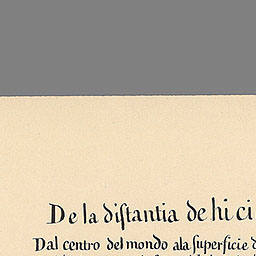 De la diſtantia de hi ci
Dal centro del mondo ala ſuperficie d